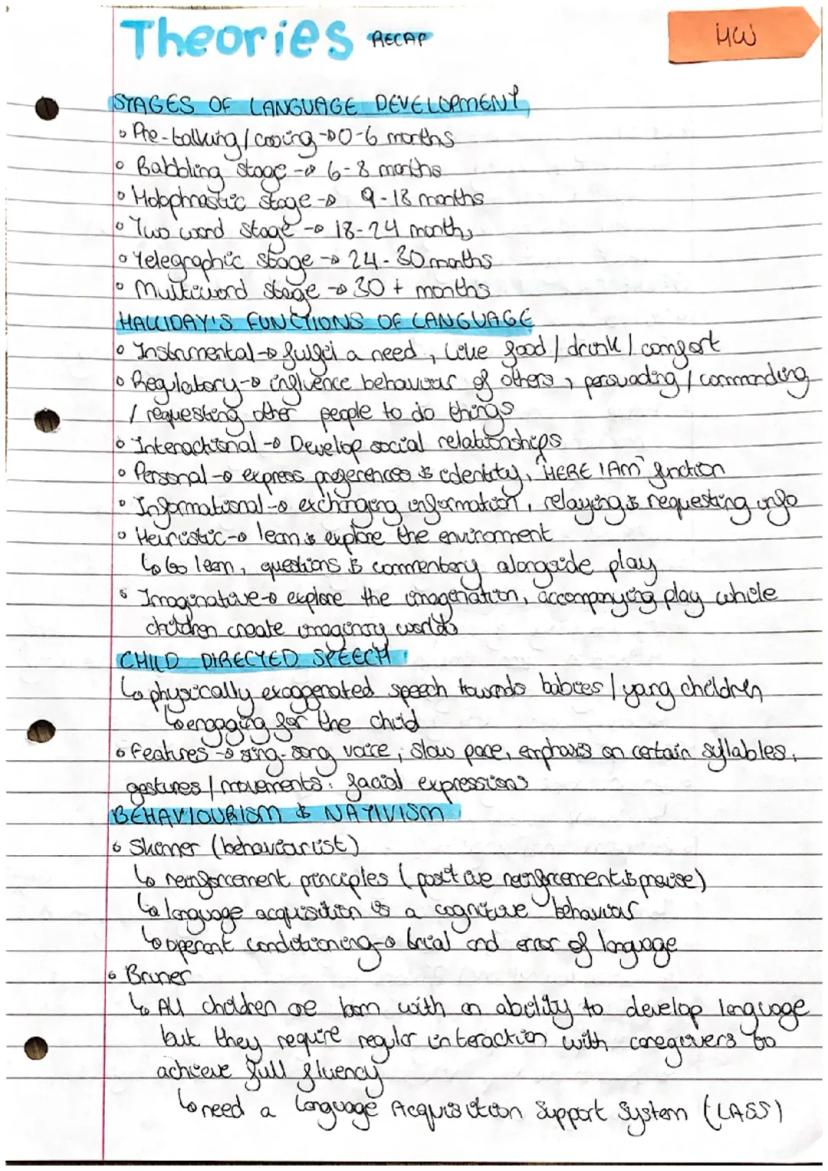 Theories RECAP
HW
STAGES OF LANGUAGE DEVELOPMENT
• Pre-talking / cooing → 0-6 months
• Babbling stage → 6-8 months
• Holophrastic stage → 9-18 months
• Two word stage → 18-24 months
• Telegraphic stage → 24-30 months
• Multiword stage → 30+ months
HALLIDAY'S FUNCTIONS OF LANGUAGE
• Instrumental → fulfil a need, like food / drink / comfort
• Regulatory → influence behaviour of others, persuading / commanding
/ requesting other people to do things
• Interactional → Develop social relationships
• Personal → express preferences & identity, 'HERE I AM' function
• Informational → exchanging information, relaying & requesting info
• Heuristic → learn & explore the environment
↳ to learn, questions & commentary alongside play
• Imaginative → explore the imagination, accompanying play while
children create imaginary worlds
CHILD DIRECTED SPEECH
↳ physically exaggerated speech towards babies / young children
↳ engaging for the child
• Features → sing-song voice, slow pace, emphasis on certain syllables,
gestures / movements, facial expressions
BEHAVIOURISM & NATIVISM
• Skinner (behaviourist)
↳ reinforcement principles (positive reinforcement & praise)
↳ language acquisition is a cognitive behaviour
↳ operant conditioning → trial and error of language
• Bruner
↳ All children are born with an ability to develop language
but they require regular interaction with caregivers to
achieve full fluency
↳ need a Language Acquisition Support System (LASS)